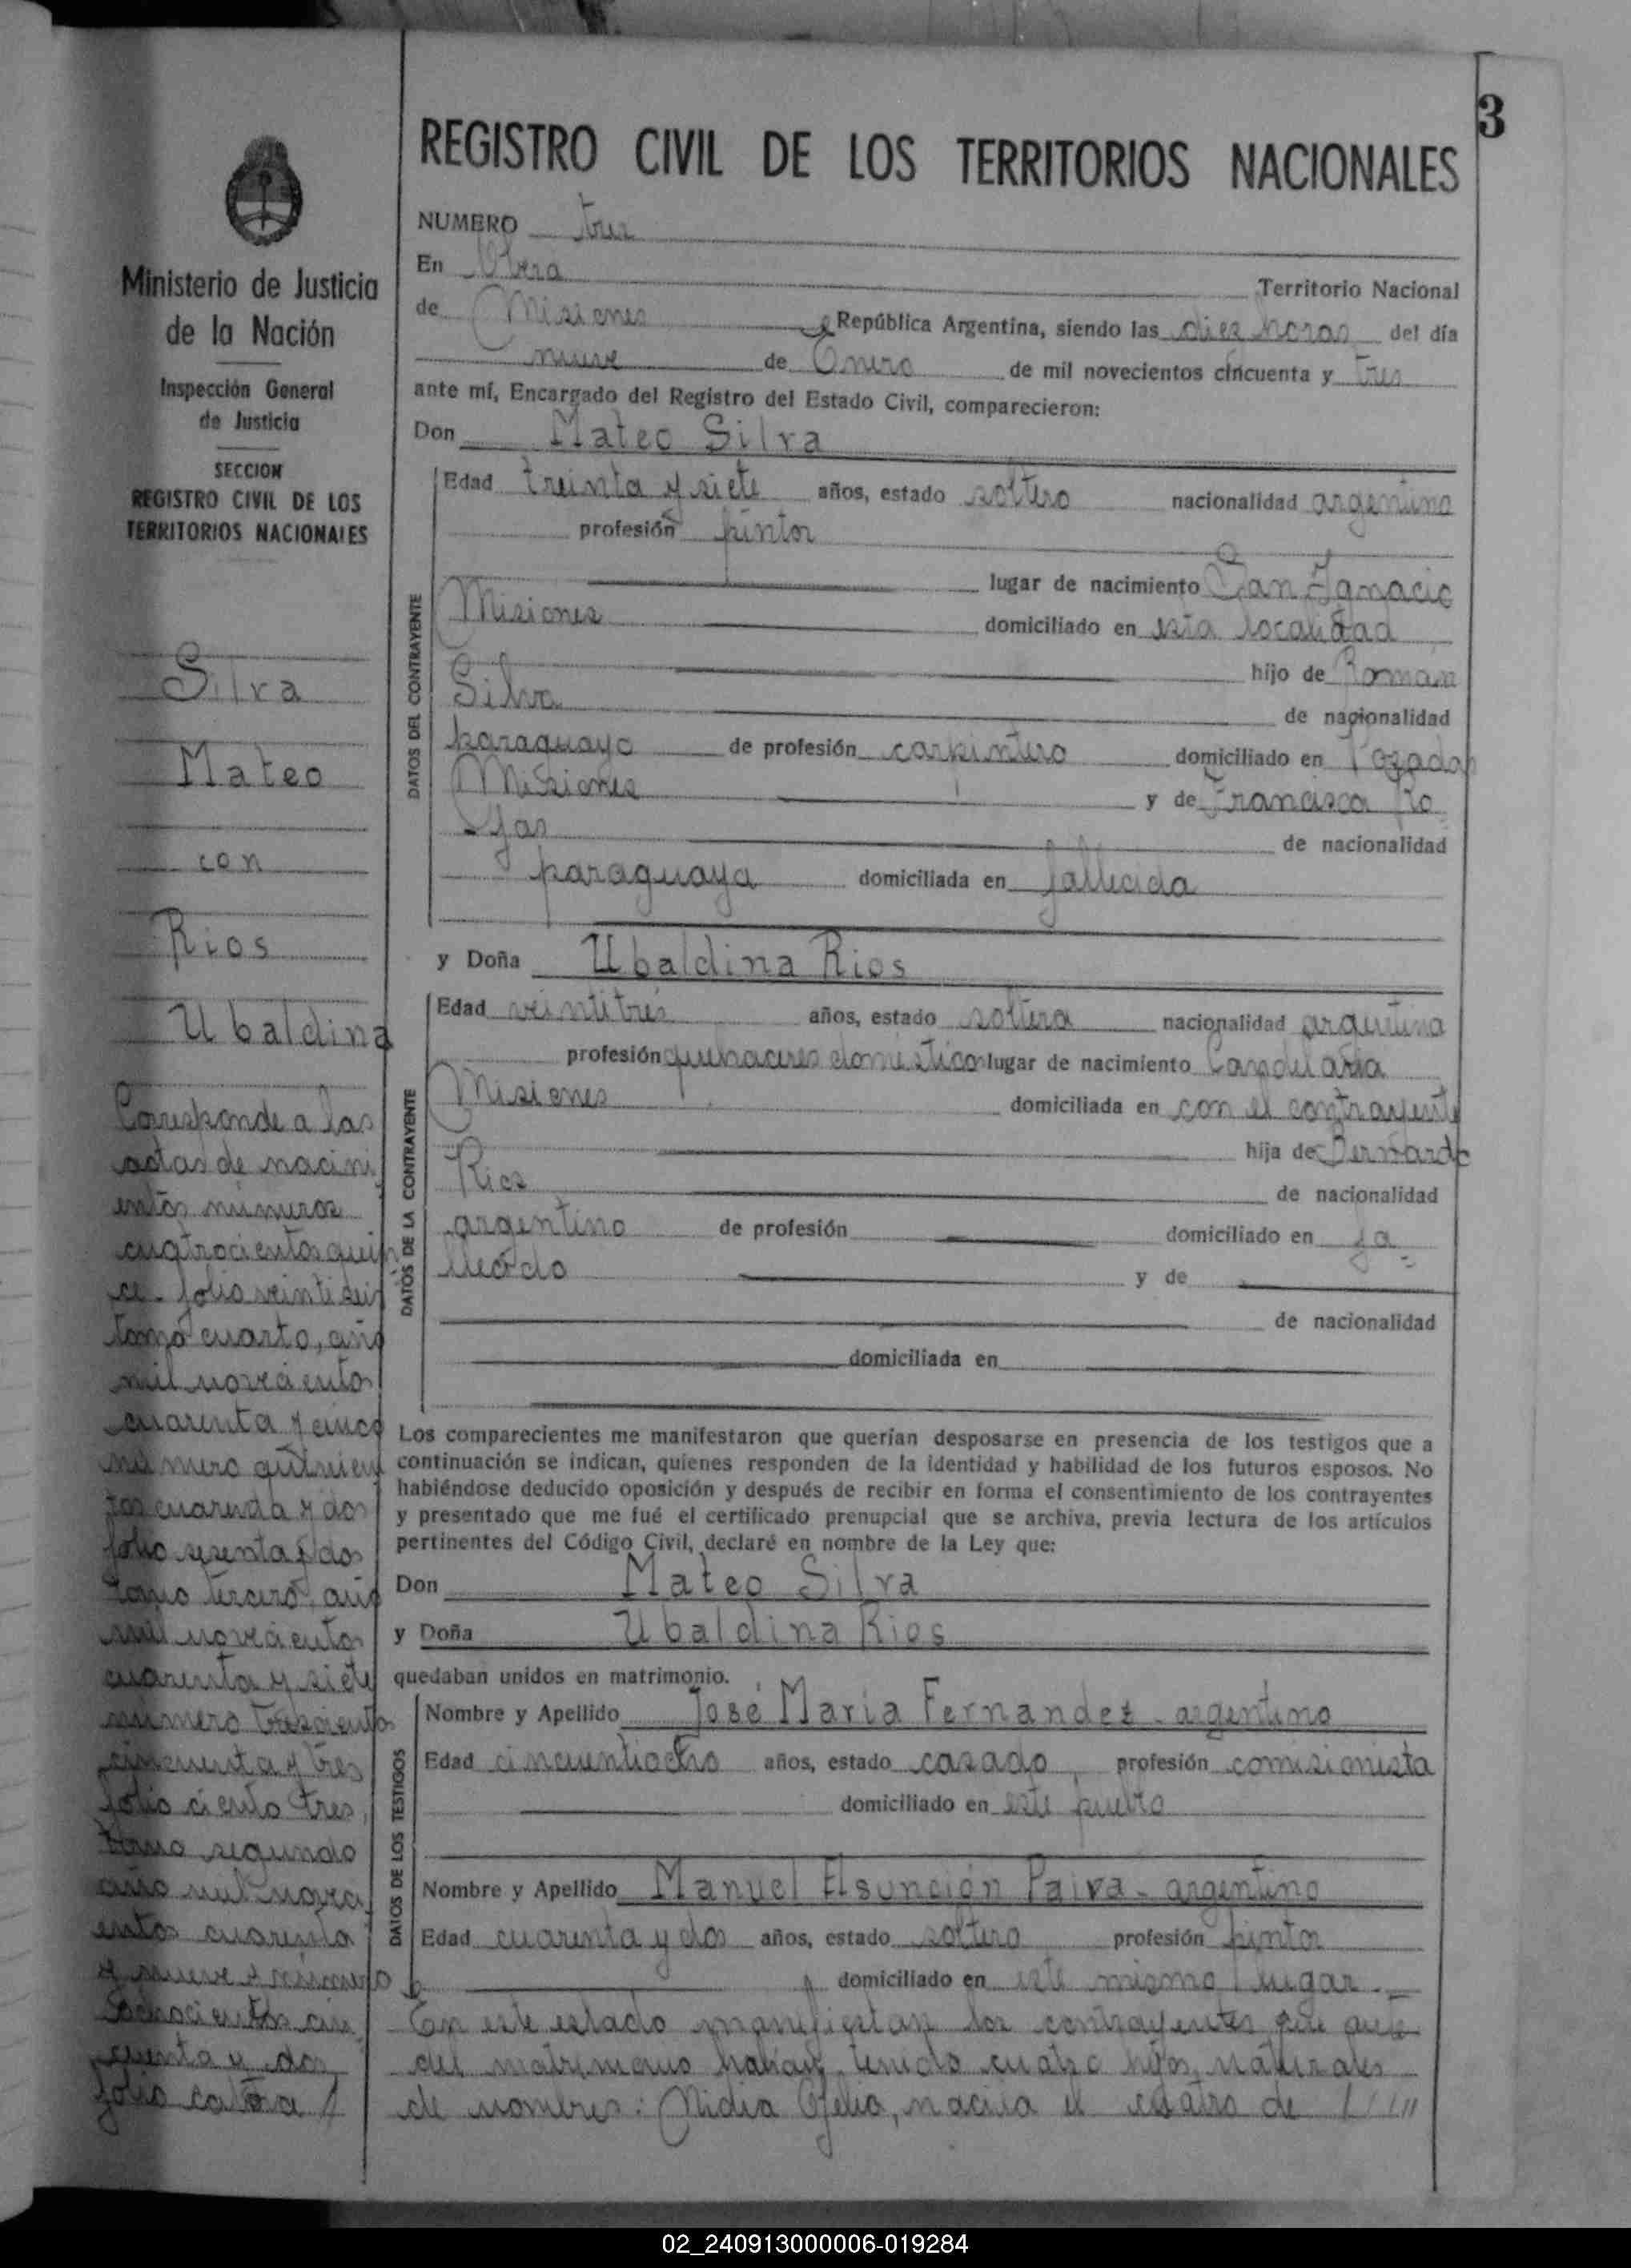 3
Ministerio de Justicia
de la Nación
Inspección General
de Justicia
SECCION
REGISTRO CIVIL DE LOS
TERRITORIOS NACIONALES
Silva
Mateo
con
Rios
Ubaldina
Corresponde a las
actas de nacimi
entos números
cuatrocientos quin
ce folio veintideis
tomo cuarto, año
mil novecientos
cuarenta y cinco
número quinien
tos cuarenta y dos
folio sesenta y dos
tomo tercero, año
mil novecientos
cuarenta y siete
número trescientos
cincuenta y tres
folio ciento tres,
tomo segundo
año mil novecí
entos cuarenta
y nueve y número
ochocientos cin
cuenta y dos
folio catorce
REGISTRO CIVIL DE LOS TERRITORIOS NACIONALES
NUMERO tres
En Obera Territorio Nacional
de Misiones República Argentina, siendo las diez horas del día
nueve de Enero de mil novecientos cincuenta y tres
ante mí, Encargado del Registro del Estado Civil, comparecieron:
Don Mateo Silva
DATOS DEL CONTRAYENTE
Edad treinta y siete años, estado soltero nacionalidad argentino
profesión pintor
lugar de nacimiento San Ignacio
Misiones domiciliado en esta localidad
hijo de Román
Silva de nacionalidad
paraguayo de profesión carpintero domiciliado en Posadas
Misiones y de Francisca Ro
jas de nacionalidad
paraguaya domiciliada en fallecida
y Doña Ubaldina Rios
DATOS DE LA CONTRAYENTE
Edad veintitres años, estado soltera nacionalidad argentina
profesión quehaceres domésticos lugar de nacimiento Candelaria
Misiones domiciliada en con el contrayente
hija de Bernardo
Rios de nacionalidad
argentino de profesión domiciliado en fa-
llecido y de
de nacionalidad
domiciliada en
Los comparecientes me manifestaron que querían desposarse en presencia de los testigos que a
continuación se indican, quienes responden de la identidad y habilidad de los futuros esposos. No
habiéndose deducido oposición y después de recibir en forma el consentimiento de los contrayentes
y presentado que me fué el certificado prenupcial que se archiva, previa lectura de los artículos
pertinentes del Código Civil, declaré en nombre de la Ley que:
Don Mateo Silva
y Doña Ubaldina Rios
quedaban unidos en matrimonio.
DATOS DE LOS TESTIGOS
Nombre y Apellido José Maria Fernandez - argentino
Edad cincuentiocho años, estado casado profesión comisionista
domiciliado en este pueblo
Nombre y Apellido Manuel Elsunción Paiva - argentino
Edad cuarenta y dos años, estado soltero profesión pintor
domiciliado en este mismo lugar.
En este estado manifiestan los contrayentes que antes
del matrimonio habían tenido cuatro hijos naturales
de nombres: Nidia Ofelia, nacida el cuatro de
02_240913000006-019284